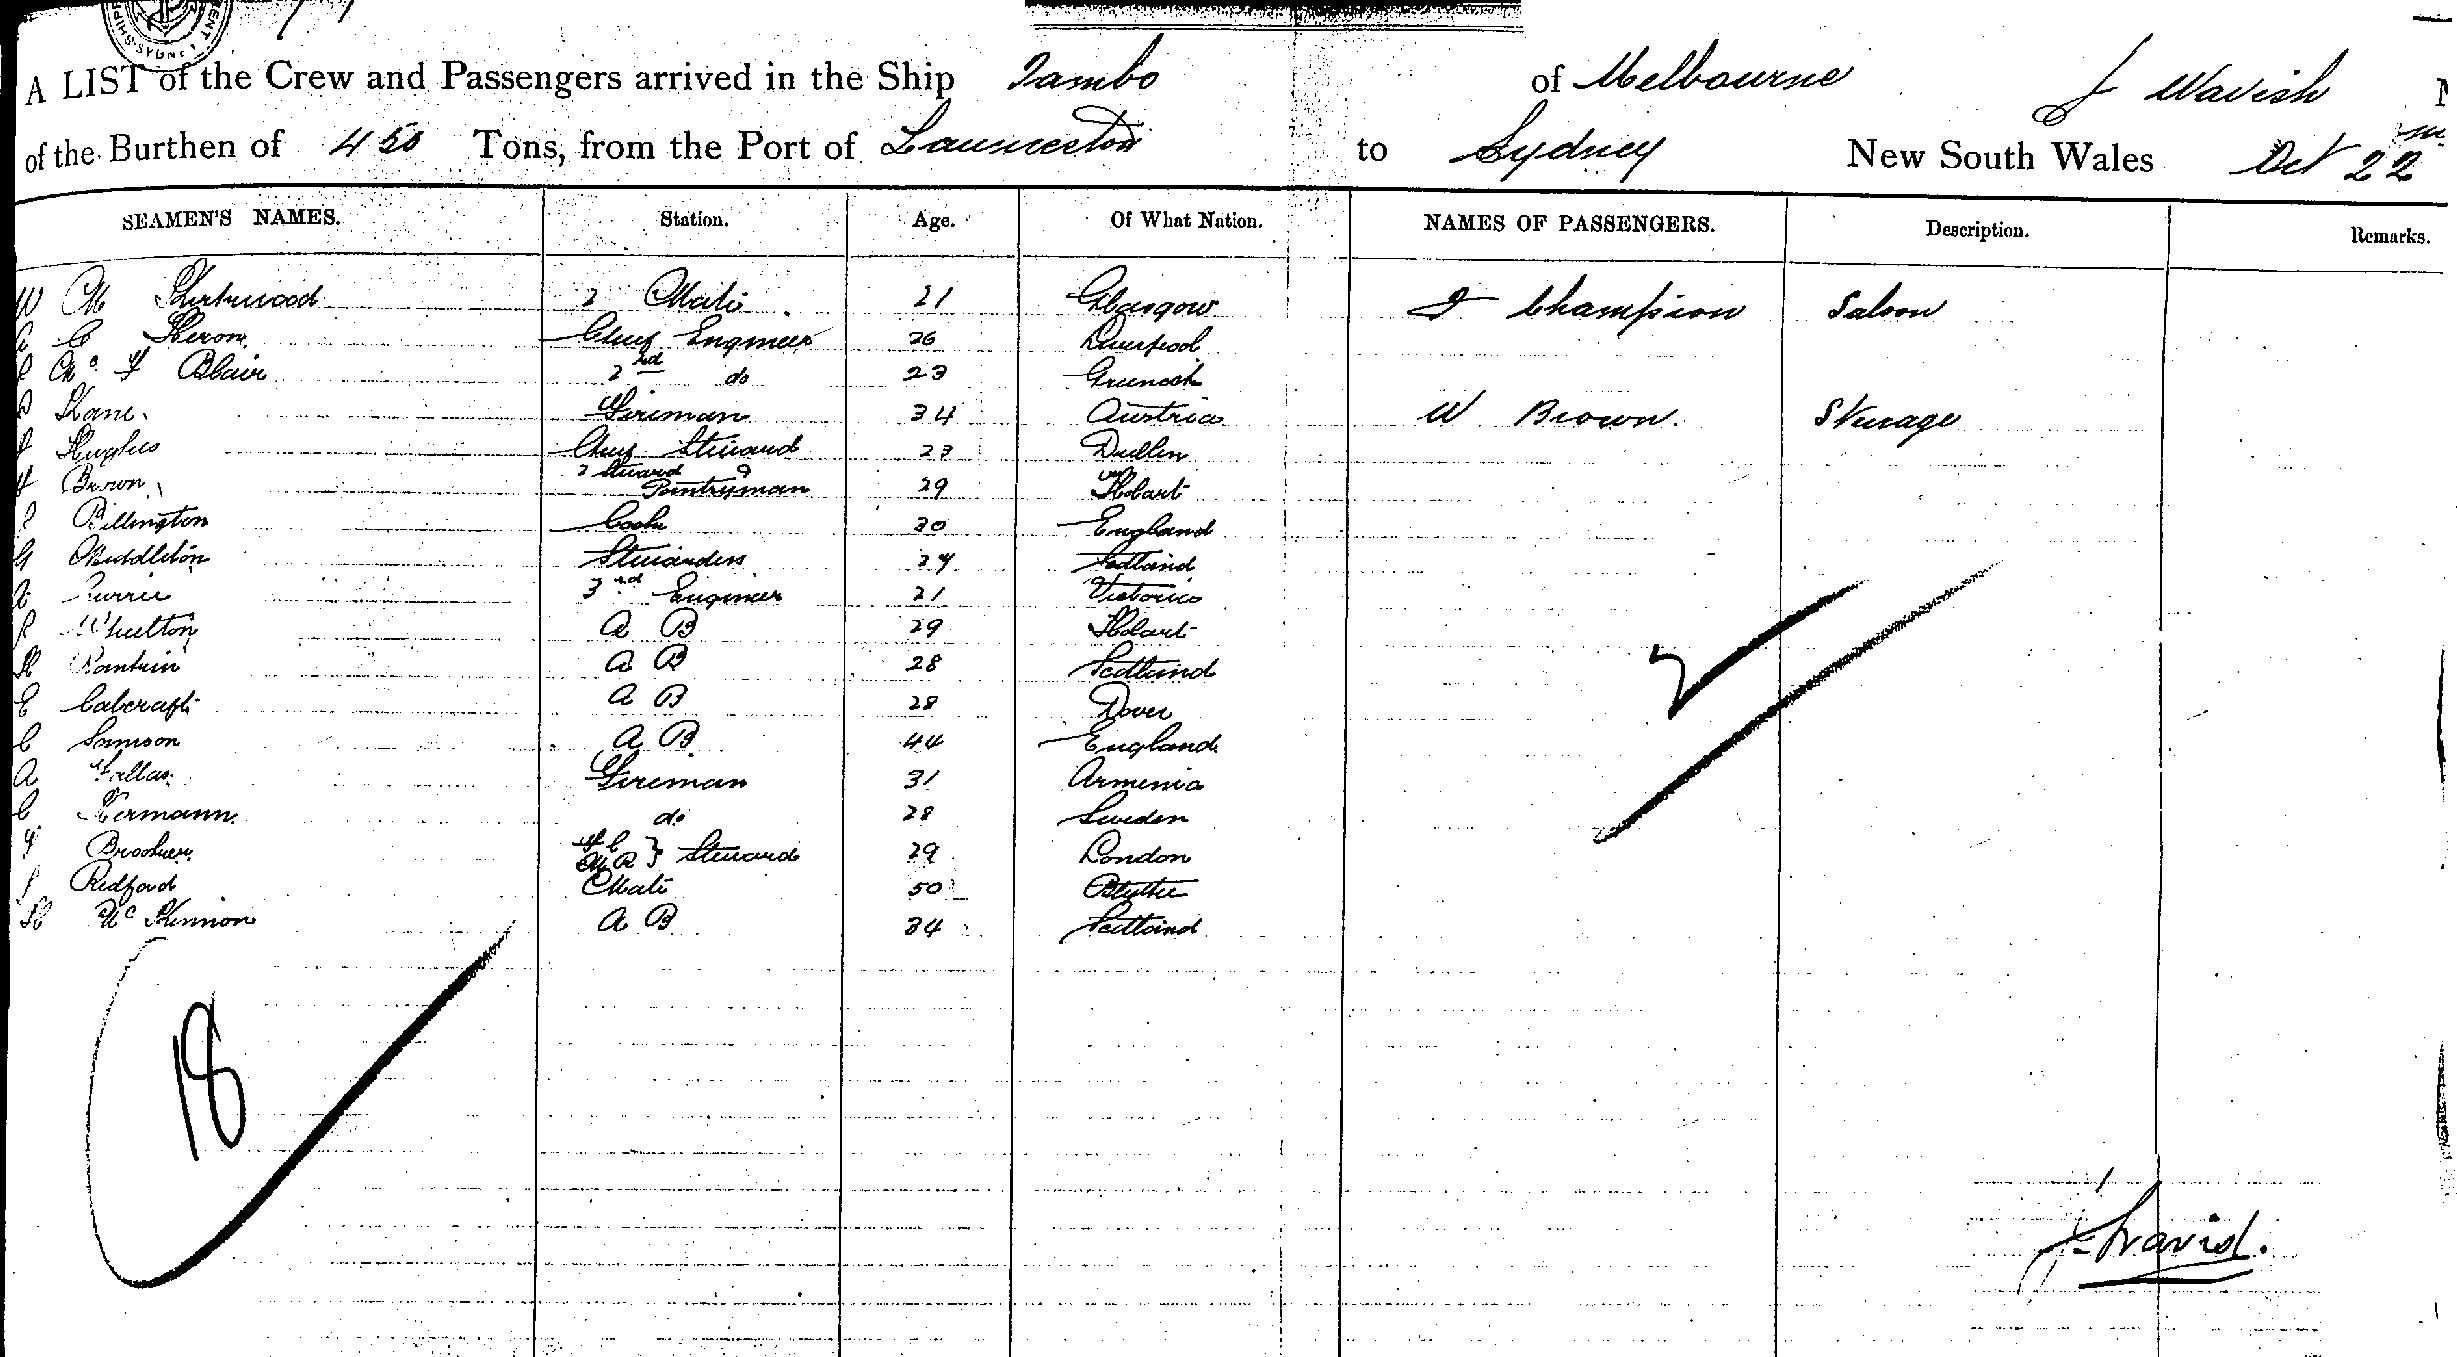 SHIPS SYDNEY
A LIST of the Crew and Passengers arrived in the Ship Tambo of Melbourne J Wavish
of the Burthen of 450 Tons, from the Port of Launceston to Sydney New South Wales Oct 22
SEAMEN'S NAMES. Station. Age. Of What Nation. NAMES OF PASSENGERS. Description. Remarks.
W M 2 Mate 21 Glasgow Champion Saloon
C Heron Chief Engineer 26 Liverpool
Blair 2nd do 23 Greenock
Kane Fireman 34 Austria W Brown. Steerage
Hughes Chief Steward 23 Dublin
Brown 2 Steward & Pantryman 29 Hobart
Billington Cook 30 England
G Middleton Stewardess 24 Scotland
Currie 3rd Engineer 21 Victoria
Wheelton A B 29 Hobart
H Rankin A B 28 Scotland
E Calcraft A B 28 Dover
C Samson A B 44 England
A Fireman 31 Armenia
C Hermann do 28 Sweden
F C M R } Steward 29 London
Redford Mate 50 Blythe
H McKinnon A B 34 Scotland
18